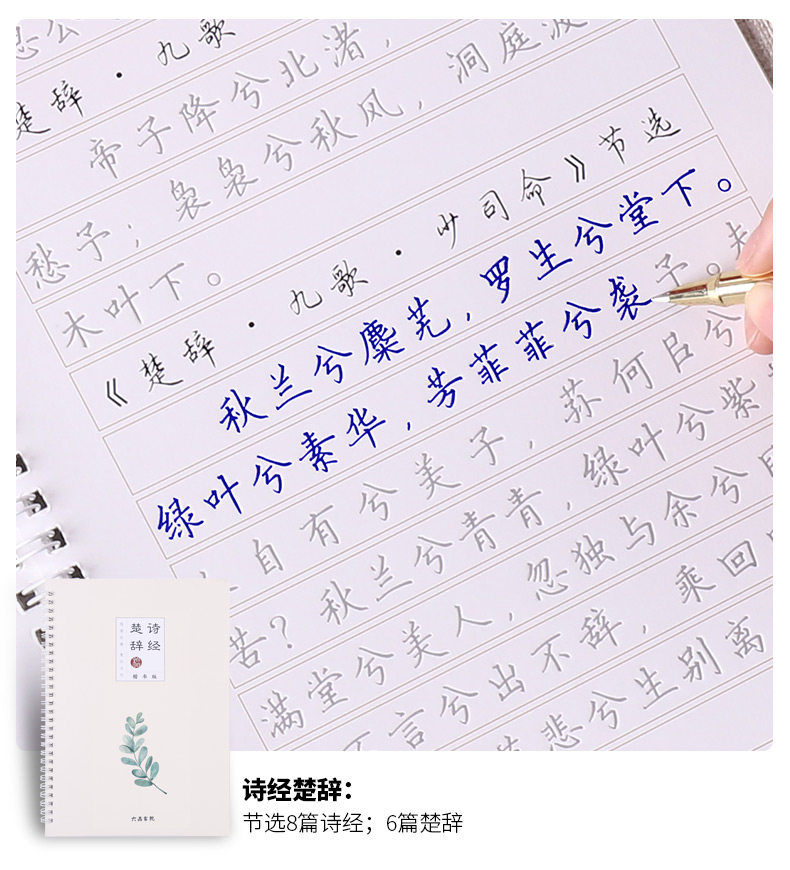 楚辞·九歌
帝子降兮北渚，洞庭波
愁予；袅袅兮秋风，
木叶下。
《楚辞·九歌·少司命》节选
秋兰兮麋芜，罗生兮堂下。
绿叶兮素华，芳菲菲兮袭予。夫
自有兮美子，荪何㠯兮
秋兰兮青青，绿叶兮紫
苦？
满堂兮美人，忽独与余兮目
言兮出不辞，乘回
悲兮生别离
诗经
楚辞
楷书版
六品书院
诗经楚辞：
节选8篇诗经；6篇楚辞